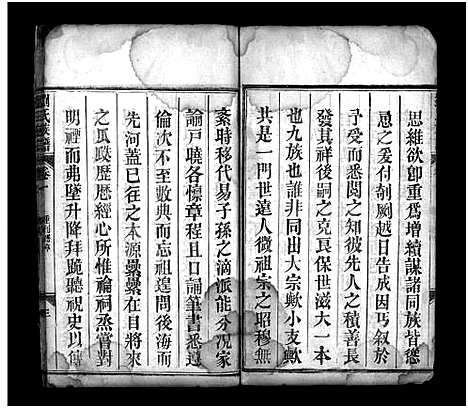 思維欲卽重爲增續謀諸同族皆慫
恿之爰付剞劂越日告成因丐叙於
予受而悉閱之知彼先人之積善長
發其祥後嗣之克艮保世滋大一本
也九族也誰非同出大宗歟小支歟
其是一門世遠人微祖宗之昭穆無
紊時移代易子孫之滴派能分況家
諭戸曉各懔章程且口誦筆書悉遵
倫次不至數典而忘祖遑問後海而
先河蓋已往之本源㬪㬪在目將來
之瓜瓞歴歴經心所惟禴祠烝嘗對
明禋而弗墜升降拜跪聽視史以傳
劉氏族譜 卷一
三